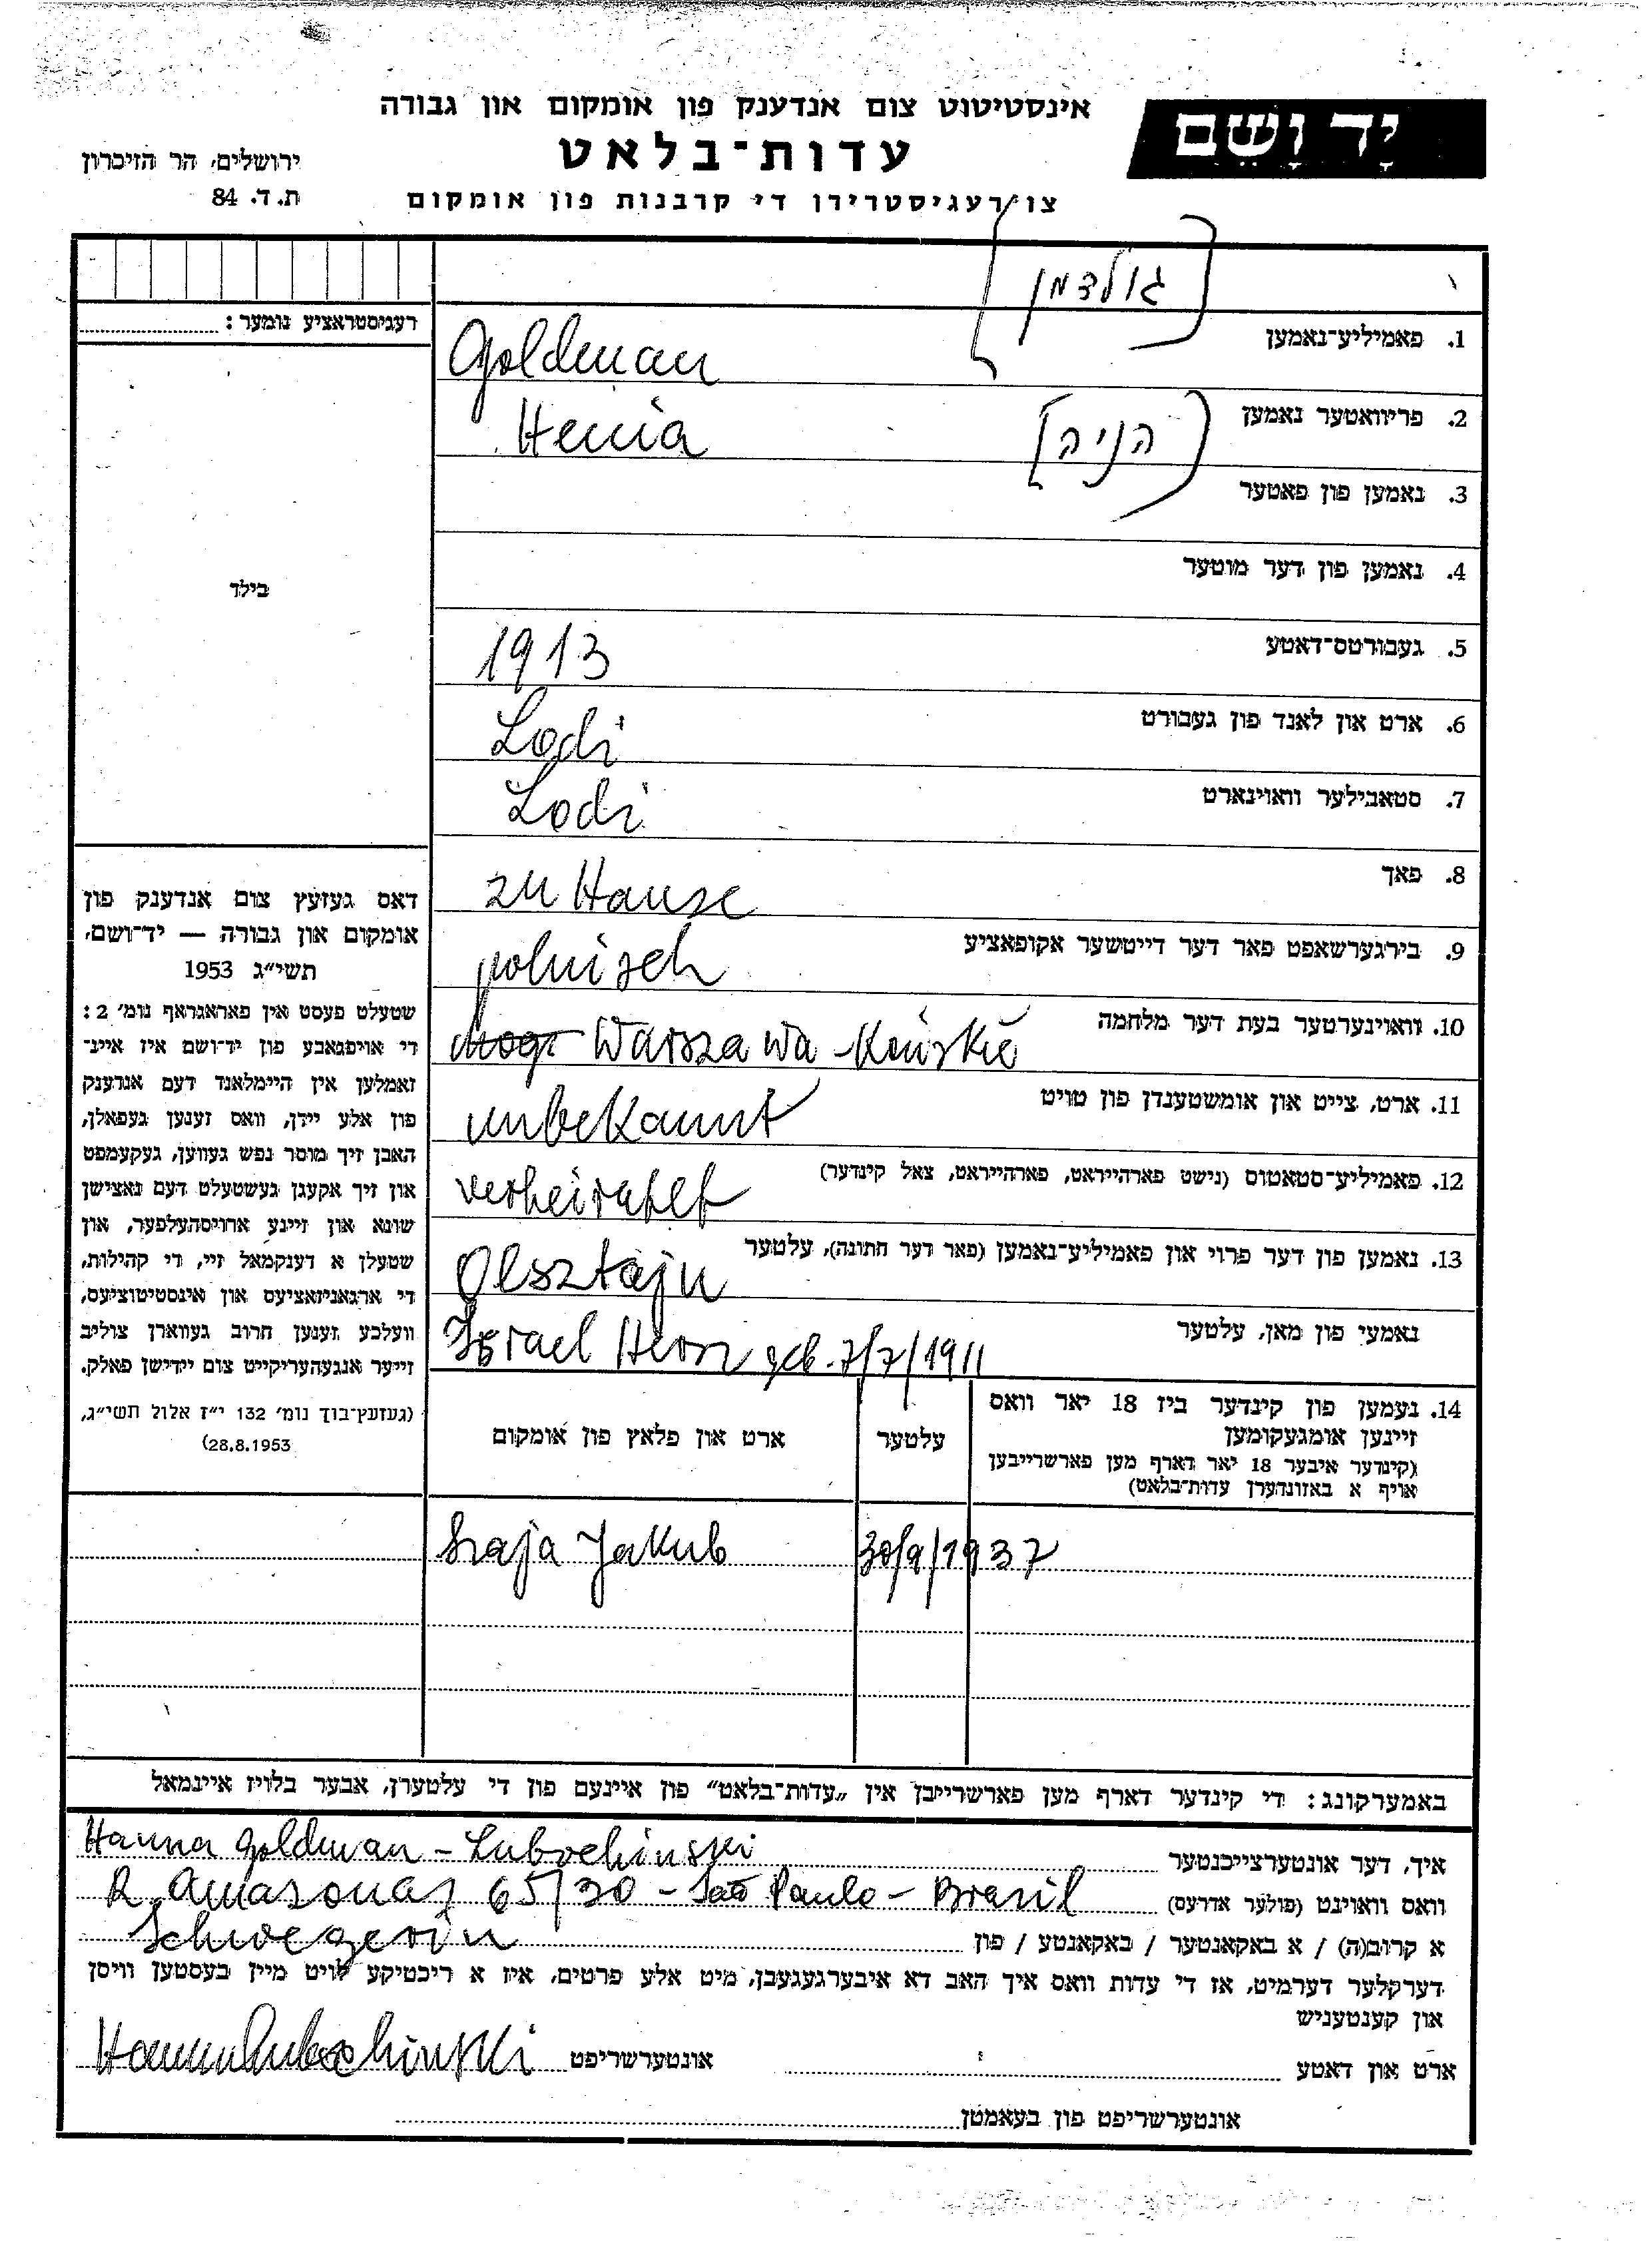 יָד וָשֵׁם
אינסטיטוט צום אנדענק פון אומקום און גבורה
עדות־בלאט
צו רעגיסטרירן די קרבנות פון אומקום
ירושלים, הר הזיכרון
ת. ד. 84
[גולדמן]
רעגיסטראציע נומער:
1. פאמיליע־נאמען Goldman
2. פריוואטער נאמען [הניה] Henia
3. נאמען פון פאטער
4. נאמען פון דער מוטער
בילד
5. געבורטס־דאטע 1913
6. ארט און לאנד פון געבורט Lodz
7. סטאבילער וואוינארט Lodz
8. פאך zu Hause
9. בירגערשאפט פאר דער דייטשער אקופאציע polnisch
10. וואוינערטער בעת דער מלחמה Warszawa - Końskie
11. ארט, צייט און אומשטענדן פון טויט unbekannt
12. פאמיליע־סטאטוס (נישט פארהייראט, פארהייראט, צאל קינדער) verheiratet
13. נאמען פון דער פרוי און פאמיליע־נאמען (פאר דער חתונה), עלטער Olsztajn
נאמעי פון מאן, עלטער Israel Hersz geb. 7/7/1911
דאס געזעץ צום אנדענק פון
אומקום און גבורה — יד־ושם,
תשי״ג 1953
שטעלט פעסט אין פאראגראף נומ׳ 2:
די אויפגאבע פון יד־ושם איז איינ־
זאמלען אין היימלאנד דעם אנדענק
פון אלע יידן, וואס זענען געפאלן,
האבן זיך מוסר נפש געווען, געקעמפט
און זיך אקעגן געשטעלט דעם נאצישן
שונא און זיינע ארויסהעלפער, און
שטעלן א דענקמאל זיי, די קהילות,
די ארגאניזאציעס און אינסטיטוציעס,
וועלכע זענען חרוב געווארן צוליב
זייער אנגעהעריקייט צום יידישן פאלק.
(געזעץ־בוך נומ׳ 132 י״ז אלול תשי״ג,
28.8.1953)
14. נעמען פון קינדער ביז 18 יאר וואס
זיינען אומגעקומען
(קינדער איבער 18 יאר דארף מען פארשרייבען
אויף א באזונדערן עדות־בלאט)
עלטער
ארט און פלאץ פון אומקום
Szaja Jakub 30/9/1937
באמערקונג: די קינדער דארף מען פארשרייבן אין „עדות־בלאט״ פון איינעם פון די עלטערן, אבער בלויז איינמאל
איך, דער אונטערצייכנטער Hanna Goldman - Lubochinski
וואס וואוינט (פולער אדרעס) R. Amazonas 65/30 - Sao Paulo - Brasil
א קרוב(ה) / א באקאנטער / באקאנטע / פון Schwegerin
דערקלער דערמיט, אז די עדות וואס איך האב דא איבערגעגעבן, מיט אלע פרטים, איז א ריכטיקע לויט מיין בעסטען וויסן
און קענטעניש
ארט און דאטע אונטערשריפט Hanna Lubochinski
אונטערשריפט פון בעאמטן